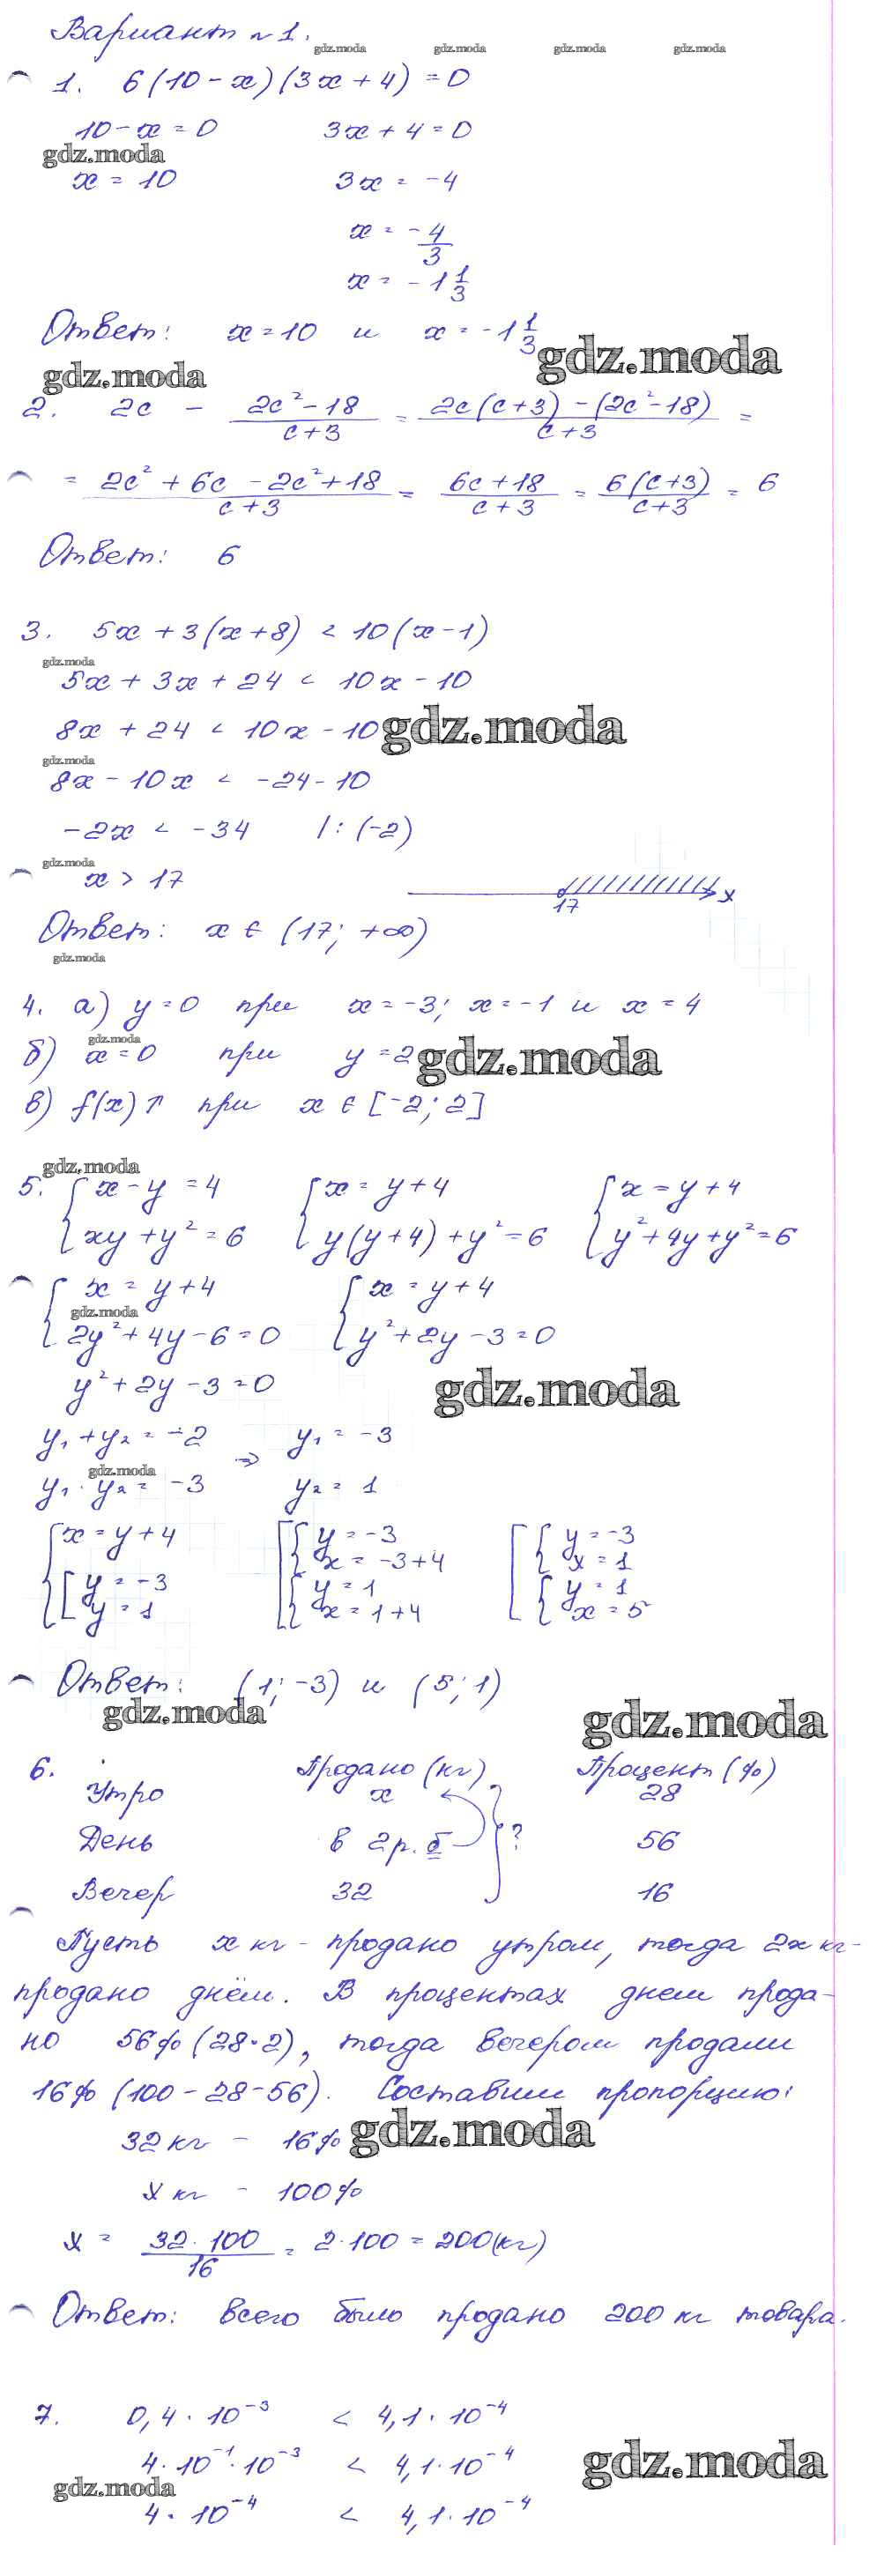 Вариант №1.
gdz.moda gdz.moda gdz.moda gdz.moda
1. 6(10-x)(3x+4)=0
10-x=0 3x+4=0
gdz.moda
x=10 3x=-4
x=-4/3
x=-1 1/3
Ответ: x=10 и x=-1 1/3
gdz.moda
gdz.moda
2. 2c - (2c²-18)/(c+3) = (2c(c+3)-(2c²-18))/(c+3) =
= (2c²+6c-2c²+18)/(c+3) = (6c+18)/(c+3) = 6(c+3)/(c+3) = 6
Ответ: 6
3. 5x+3(x+8)<10(x-1)
gdz.moda
5x+3x+24<10x-10
8x+24<10x-10
gdz.moda
gdz.moda
8x-10x<-24-10
-2x<-34 |:(-2)
gdz.moda
x>17
17 x
Ответ: x∈(17;+∞)
gdz.moda
4. а) y=0 при x=-3; x=-1 и x=4
gdz.moda
б) x=0 при y=2
gdz.moda
в) f(x)↑ при x∈[-2;2]
gdz.moda
5. {x-y=4 {x=y+4 {x=y+4
{xy+y²=6 {y(y+4)+y²=6 {y²+4y+y²=6
{x=y+4 {x=y+4
gdz.moda
{2y²+4y-6=0 {y²+2y-3=0
y²+2y-3=0
gdz.moda
y₁+y₂=-2 ⇒ y₁=-3
gdz.moda
y₁·y₂=-3 y₂=1
{x=y+4 [{y=-3 [{y=-3
x=-3+4 x=1
{[y=-3 {y=1 {y=1
y=1 x=1+4 x=5
Ответ: (1;-3) и (5;1)
gdz.moda
gdz.moda
6. Продано (кг) Процент (%)
Утро x 28
День в 2р. б ? 56
Вечер 32 16
Пусть x кг - продано утром, тогда 2x кг-
продано днём. В процентах днем прода-
но 56% (28·2), тогда вечером продали
16% (100-28-56). Составим пропорцию:
32 кг - 16%
gdz.moda
x кг - 100%
x = 32·100/16 = 2·100=200(кг)
Ответ: всего было продано 200 кг товара.
7. 0,4·10⁻³ < 4,1·10⁻⁴
4·10⁻¹·10⁻³ < 4,1·10⁻⁴
gdz.moda
gdz.moda
4·10⁻⁴ < 4,1·10⁻⁴